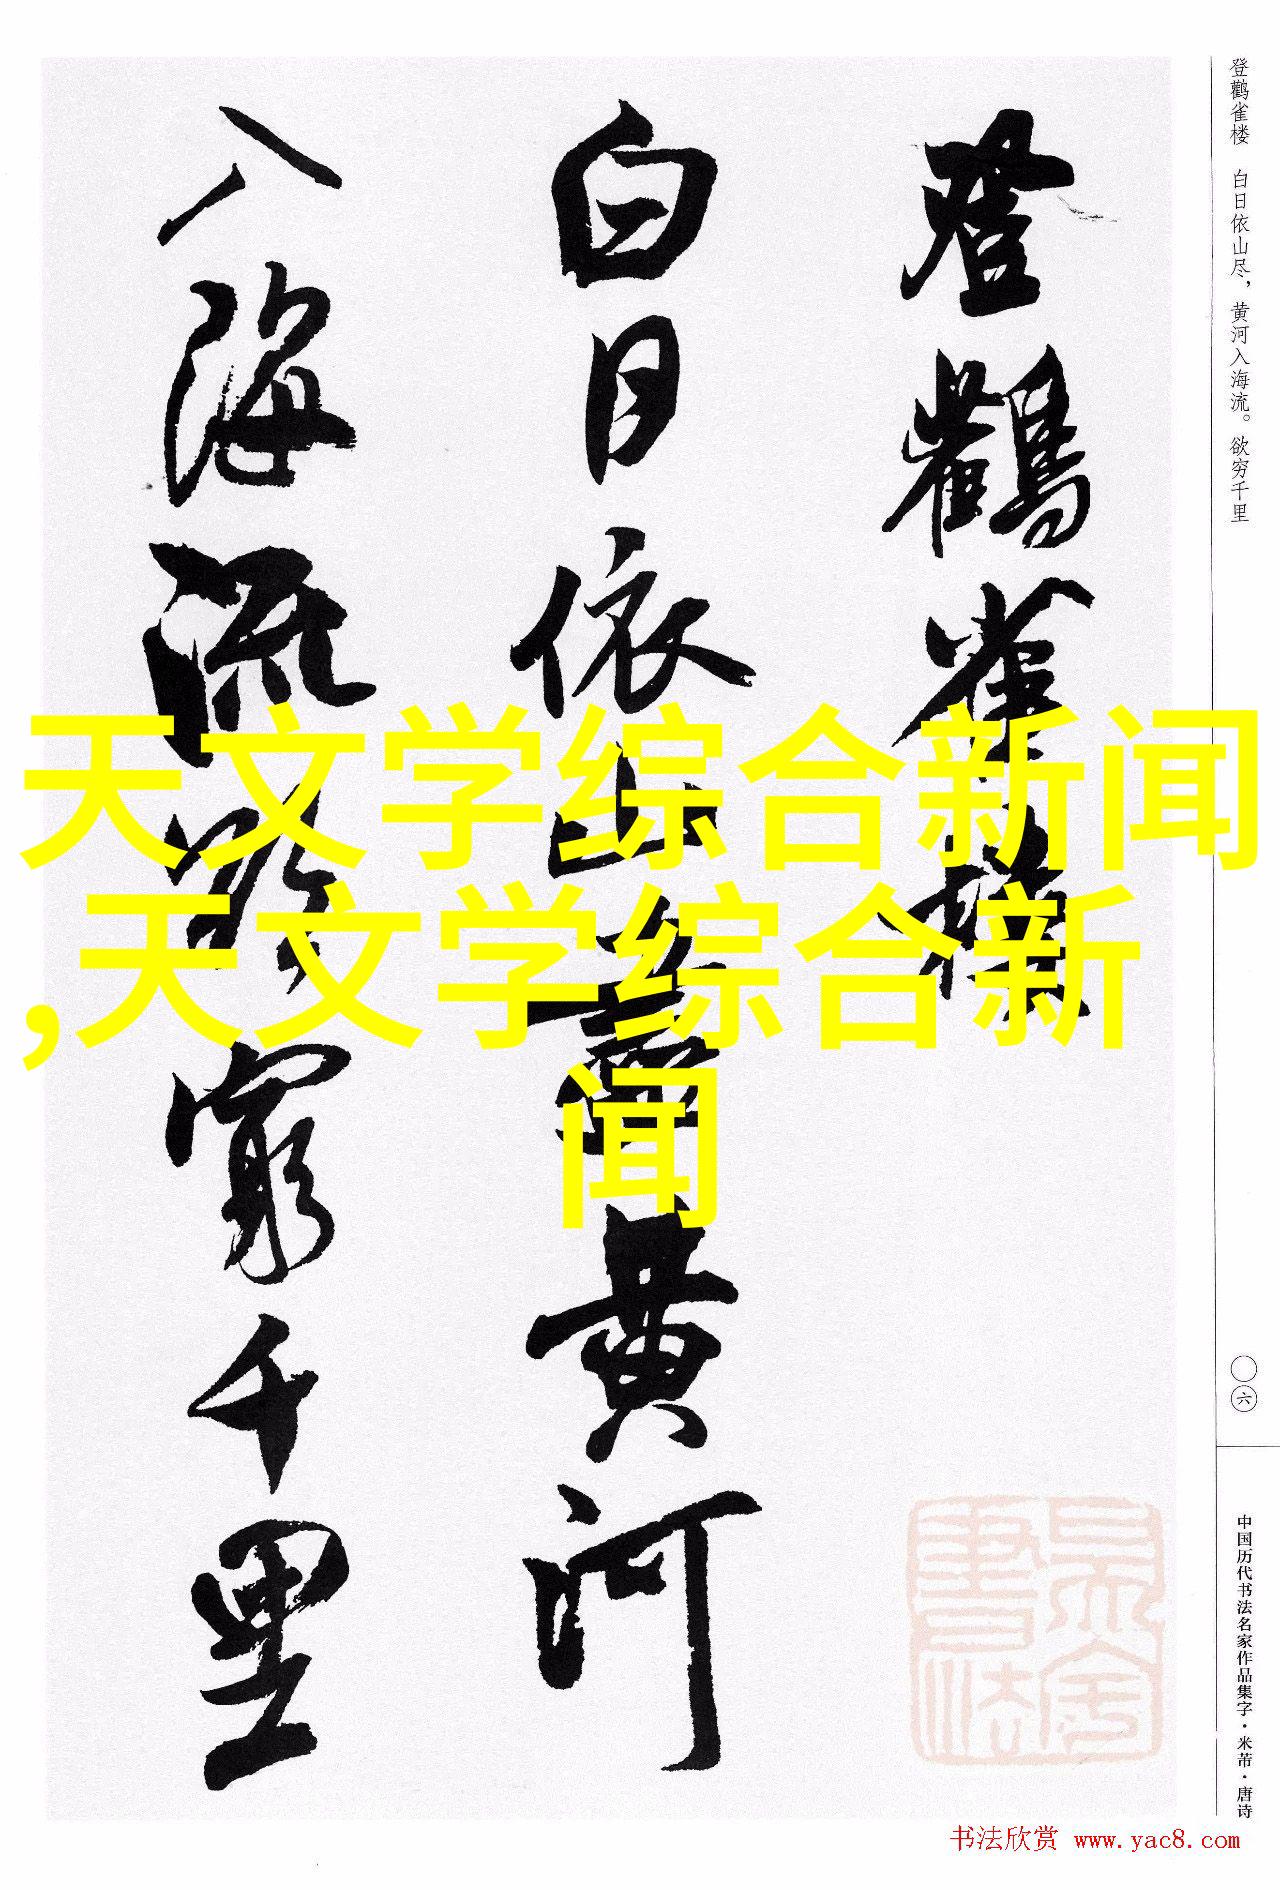 登鹳雀楼 白日依山尽，黄河入海流。欲穷千里
登鸛雀樓
白日依山盡黄河
入海流欲窮千里
天文学综合新闻
,天文学综合新
闻
〇六
中国历代书法名家作品集字·米芾·唐诗
书法欣赏 www.yac8.com